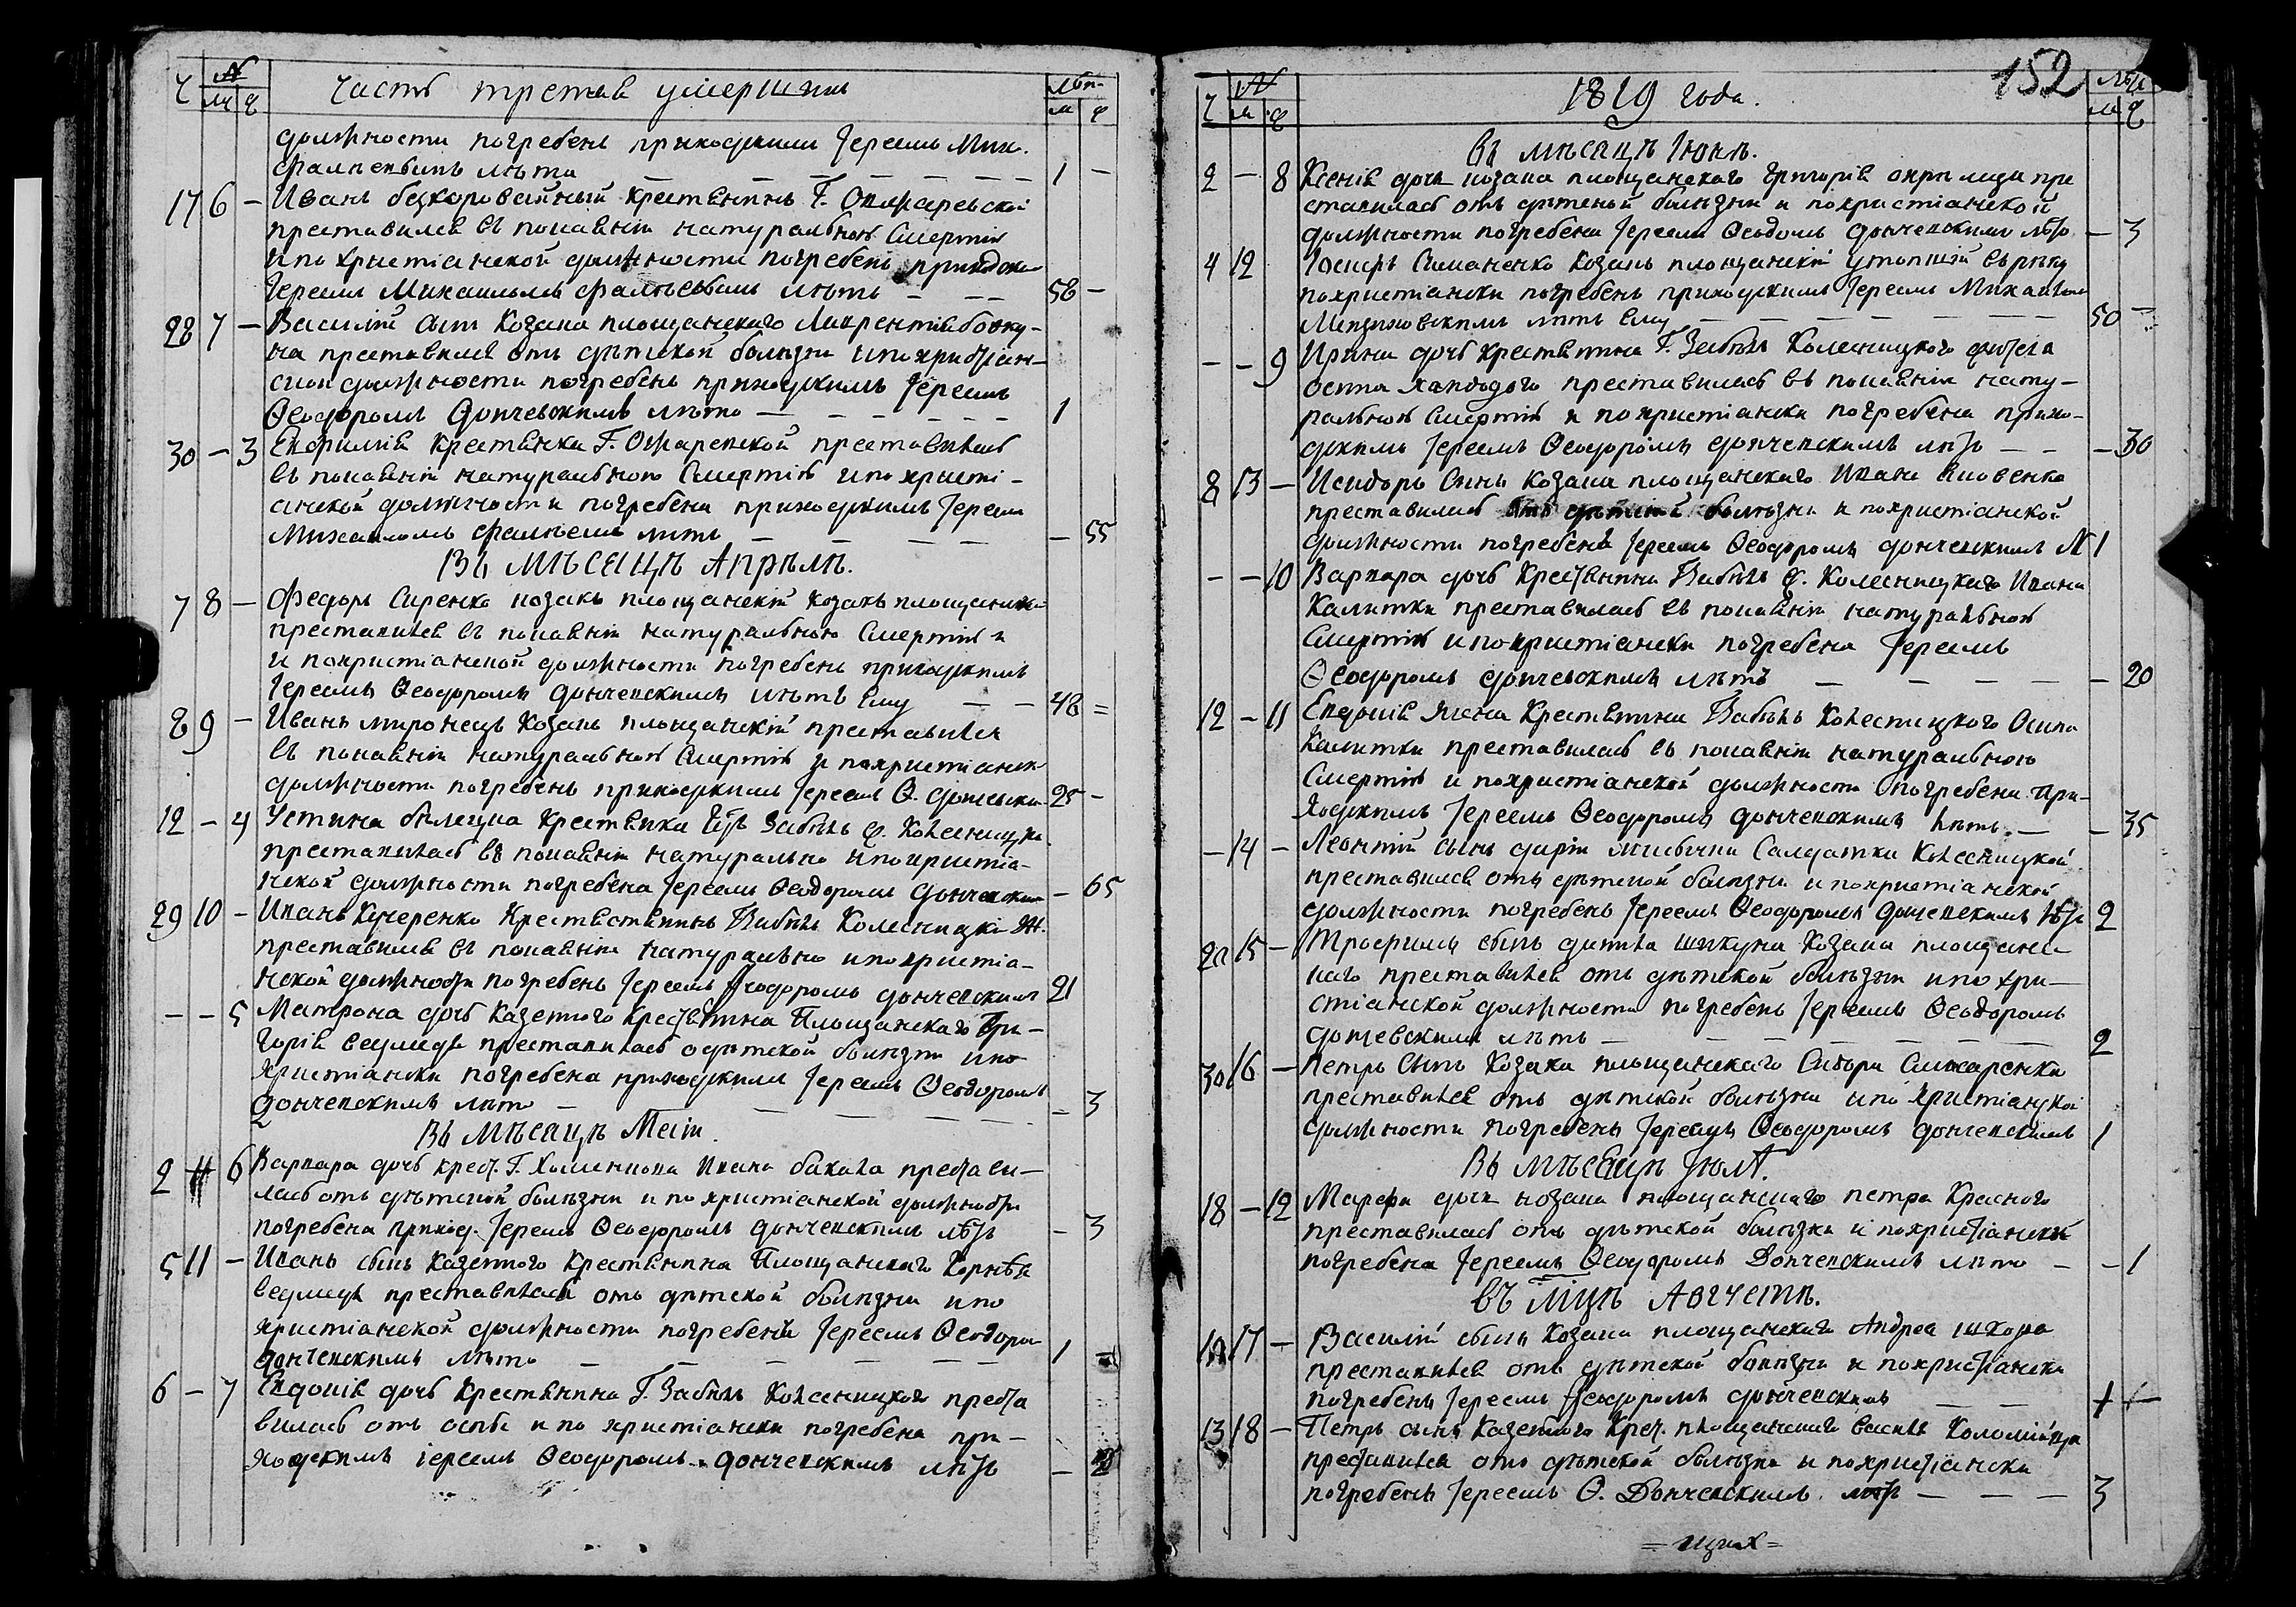 Ч № м ч Часть третяя умершихъ лѣт. м ч
должности погребенъ приходскимъ Іереемъ Мих.
лѣто — — — — — — 1 —
17 6 — Иванъ безкоровайный крестянинъ Г.
преставился въ покаяніи натуральною Смертію
и по христіанской должности погребенъ
Іереемъ Михаиломъ лѣтъ — — — 58 —
28 7 — Василій сынъ Козака площанского Лаврентія
преставился отъ дѣтской болѣзни и по христіан-
ской должности погребенъ приходскимъ Іереемъ
Ѳеодоромъ Дончевскимъ лѣто — — — — — 1
30 — 3 Евфимія крестянка Г. преставилась
въ покаяніи натуральною Смертію и по христі-
анской должности погребена приходскимъ Іереем
Михаиломъ лѣтъ — — — — — 55
Въ мѣсяцѣ Апрѣлѣ.
7 8 — Федоръ Сиренко козакъ площанскій козакъ
преставился въ покаяніи натуральною Смертію и
и по христіанской должности погребенъ приходскимъ
Іереемъ Ѳеодоромъ Дончевскимъ лѣтъ Ему — — 48 =
8 9 — Иванъ миронецъ Козакъ площанскій преставился
въ покаяніи натуральною Смертію и по христіанск
должности погребенъ приходскимъ Іереем Ѳ. 25 —
12 — 4 Устина крестянка Забѣлъ
преставилась въ покаяніи натурально и по христіа-
нской должности погребена Іереемъ Ѳеодоромъ — 65
29 10 — Иванъ Кучеренко Забѣлъ
преставился въ покаяніи натурально и по христіа-
нской должности погребенъ Іереемъ Ѳеодоромъ дончевскимъ 21
— — 5 Матрона дочъ Казенного крестянина Площанского Гри-
горія преставилась дѣтской болѣзни и по
христіански погребена приходскимъ Іереемъ Ѳеодоромъ
Дончевскимъ лѣто — — — — — — 3
Въ Мѣсяцѣ Маіи.
2 6 Варвара дочъ крест. Г. Ивана престави-
лась отъ дѣтской болѣзни и по христіанской должности
погребена приход. Іереемъ Ѳеодоромъ дончевскимъ лѣтъ — 3
5 11 — Иванъ сынъ Казенного Крестянина Площанского Корнѣя
преставилась отъ дѣтской болѣзни и по
христіанской должности погребенъ Іереемъ
дончевскимъ лѣто — — — — — 1 —
6 — 7 Евдокія дочъ Крестянина Г. Забѣлъ преста
вилась отъ оспы и по христіански погребена при-
ходскимъ іереемъ Ѳеодоромъ дончевскимъ лѣтъ —
152
Ч № м ч 1819 года. м ч
Въ мѣсяцѣ Іюнѣ.
2 — 8 Ксенія дочъ козака площанского Григорія пре
ставилась отъ дѣтской болѣзни и по христіанской
должности погребена Іереем дончевскимъ — 3
4 12 Іосифъ Симаненко Козакъ площанскій
по христіански погребенъ приходскимъ Іереем Михаилом
лѣтъ Ему — — — — — 50 —
— — 9 Ирина дочъ крестянина Г. Забѣлъ Колесницкого
преставилась въ покаяніи нату-
ральною Смертію и по христіански погребена прихо-
дскимъ Іереемъ Ѳеодоромъ дончевскимъ — — — 30
8 13 — Исидоръ Сынъ Козака площанского Ивана Яковенка
преставилась отъ дѣтской болѣзни и по христіанской
должности погребенъ Іереемъ Ѳеодоромъ дончевскимъ 1
— — 10 Варвара дочъ Крестянина Забѣлъ Колесницкого Ивана
Калитки преставилась въ покаяніи натуральною
Смертію и по христіански погребена Іереемъ
Ѳеодоромъ дончевскимъ лѣтъ — — — — — 20
12 — 11 Евдокія жена Крестянина Забѣлъ Колесницкого Осипа
Калитки преставилась въ покаяніи натуральною
Смертію и по христіанской должности погребена при-
ходскимъ Іереемъ Ѳеодоромъ дончевскимъ лѣтъ. — — 35
— 14 — Леонтій сынъ Солдатки Колесницкой
преставился отъ дѣтской болѣзни и по христіанской
должности погребенъ Іереемъ Ѳеодоромъ 2
15 — Трофимъ сынъ Козака площанс-
кого преставился отъ дѣтской болѣзни и по хри-
стіанской должности погребенъ Іереемъ Ѳеодоромъ
лѣтъ — — — — — — 2
30 16 — Петръ Сынъ Козака площанского
преставился отъ дѣтской болѣзни и по христіанской
должности погребенъ Іереемъ Ѳеодоромъ дончевскимъ 1
Въ мѣсяцѣ Іюлѣ.
18 — 12 Марфа дочъ козака площанского петра Красного
преставилась отъ дѣтской болѣзни и по христіански
погребена Іереемъ Ѳеодоромъ Дончевскимъ лѣто — — 1
въ мцѣ Августѣ.
17 — Василій сынъ Козака площанского Андрея
преставился отъ дѣтской болѣзни и по христіански
погребенъ Іереемъ Ѳеодоромъ дончевскимъ — —
13 18 — Петръ сынъ Казенного Крест. площанского
преставился отъ дѣтской болѣзни и по христіански
погребенъ Іереемъ Ѳ. Дончевскимъ — — — 3